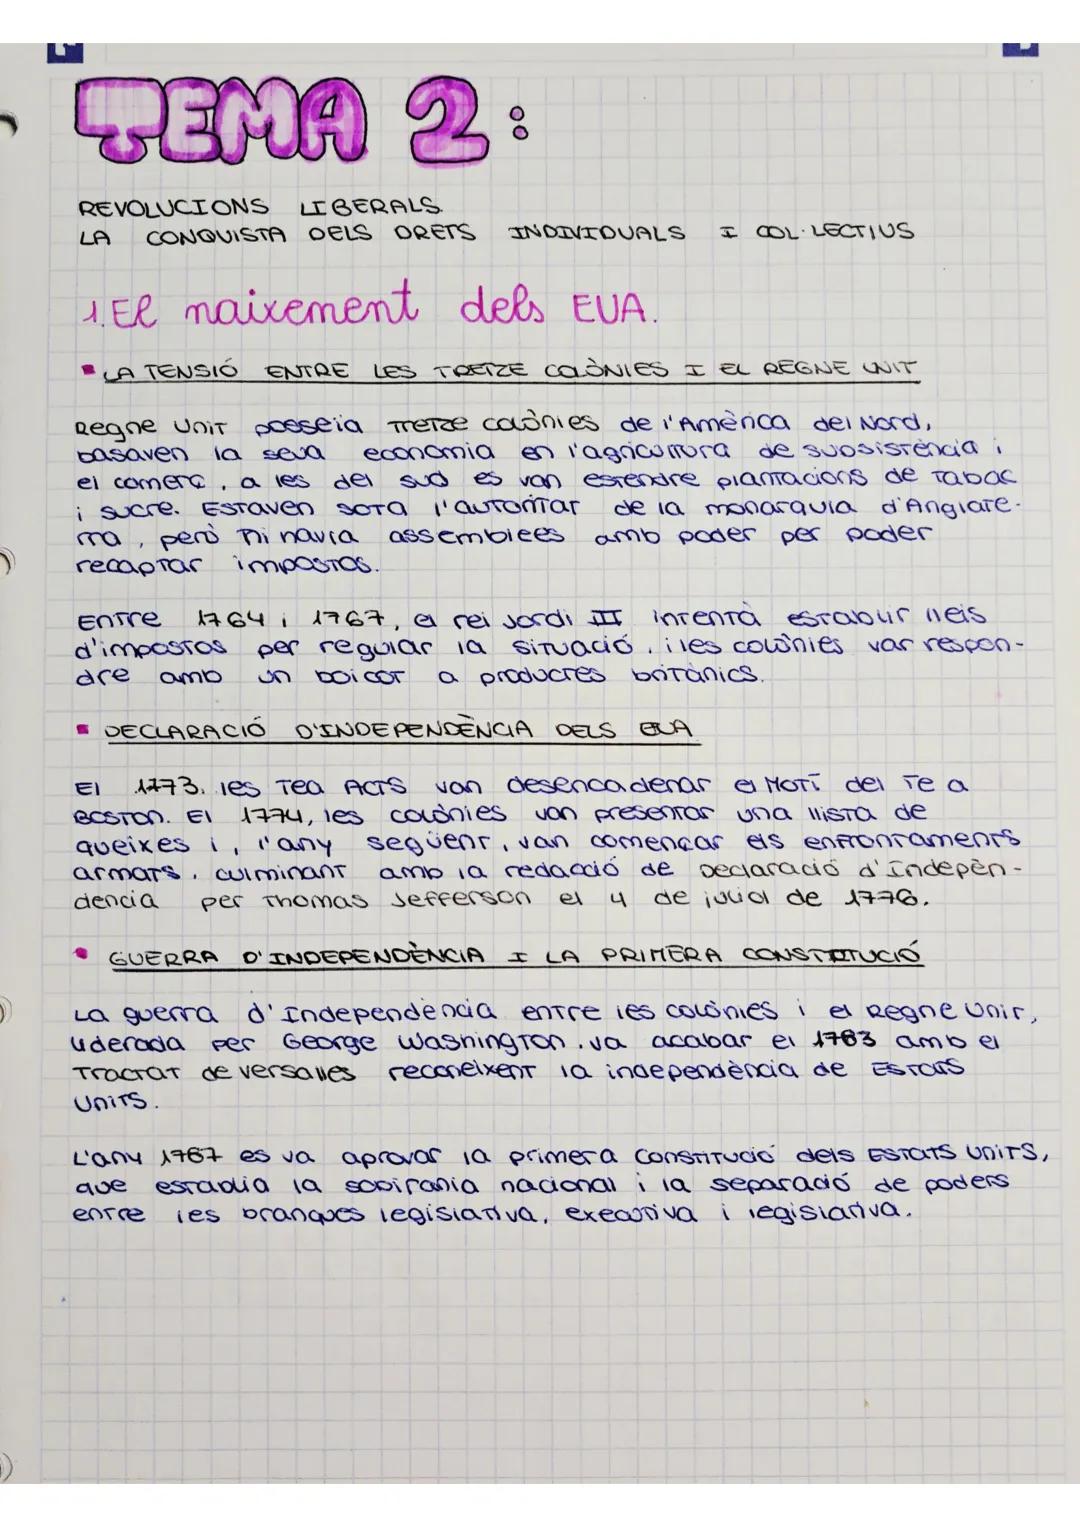 TEMA 2:
REVOLUCIONS LIBERALS.
LA CONQUISTA DELS DRETS INDIVIDUALS I COL·LECTIUS
1. El naixement dels EUA.
▪ LA TENSIÓ ENTRE LES TRETZE COLÒNIES I EL REGNE UNIT
Regne Unit posseïa tretze colònies de l'Amèrica del Nord,
basaven la seva economia en l'agricultura de subsistència i
el comerç, a les del sud es van estendre plantacions de tabac
i sucre. Estaven sota l'autoritat de la monarquia d'Anglate-
rra, però hi havia assemblees amb poder per poder
recaptar impostos.
Entre 1764 i 1767, el rei Jordi III intentà establir lleis
d'impostos per regular la situació, i les colònies var respon-
dre amb un boicot a productes britànics.
▪ DECLARACIÓ D'INDEPENDÈNCIA DELS EUA
El 1773, les Tea Acts van desencadenar el Motí del Te a
Boston. El 1774, les colònies van presentar una llista de
queixes i, l'any següent, van començar els enfrontaments
armats, culminant amb la redacció de Declaració d'Indepèn-
dencia per Thomas Jefferson el 4 de juliol de 1776.
▪ GUERRA D'INDEPENDÈNCIA I LA PRIMERA CONSTITUCIÓ
La guerra d'Independència entre les colònies i el Regne Unit,
liderada per George Washington, va acabar el 1783 amb el
Tractat de Versalles reconeixent la independència de Estats
Units.
L'any 1787 es va aprovar la primera Constitució dels Estats Units,
que establia la sobirania nacional i la separació de poders
entre les branques legislativa, executiva i legislativa.